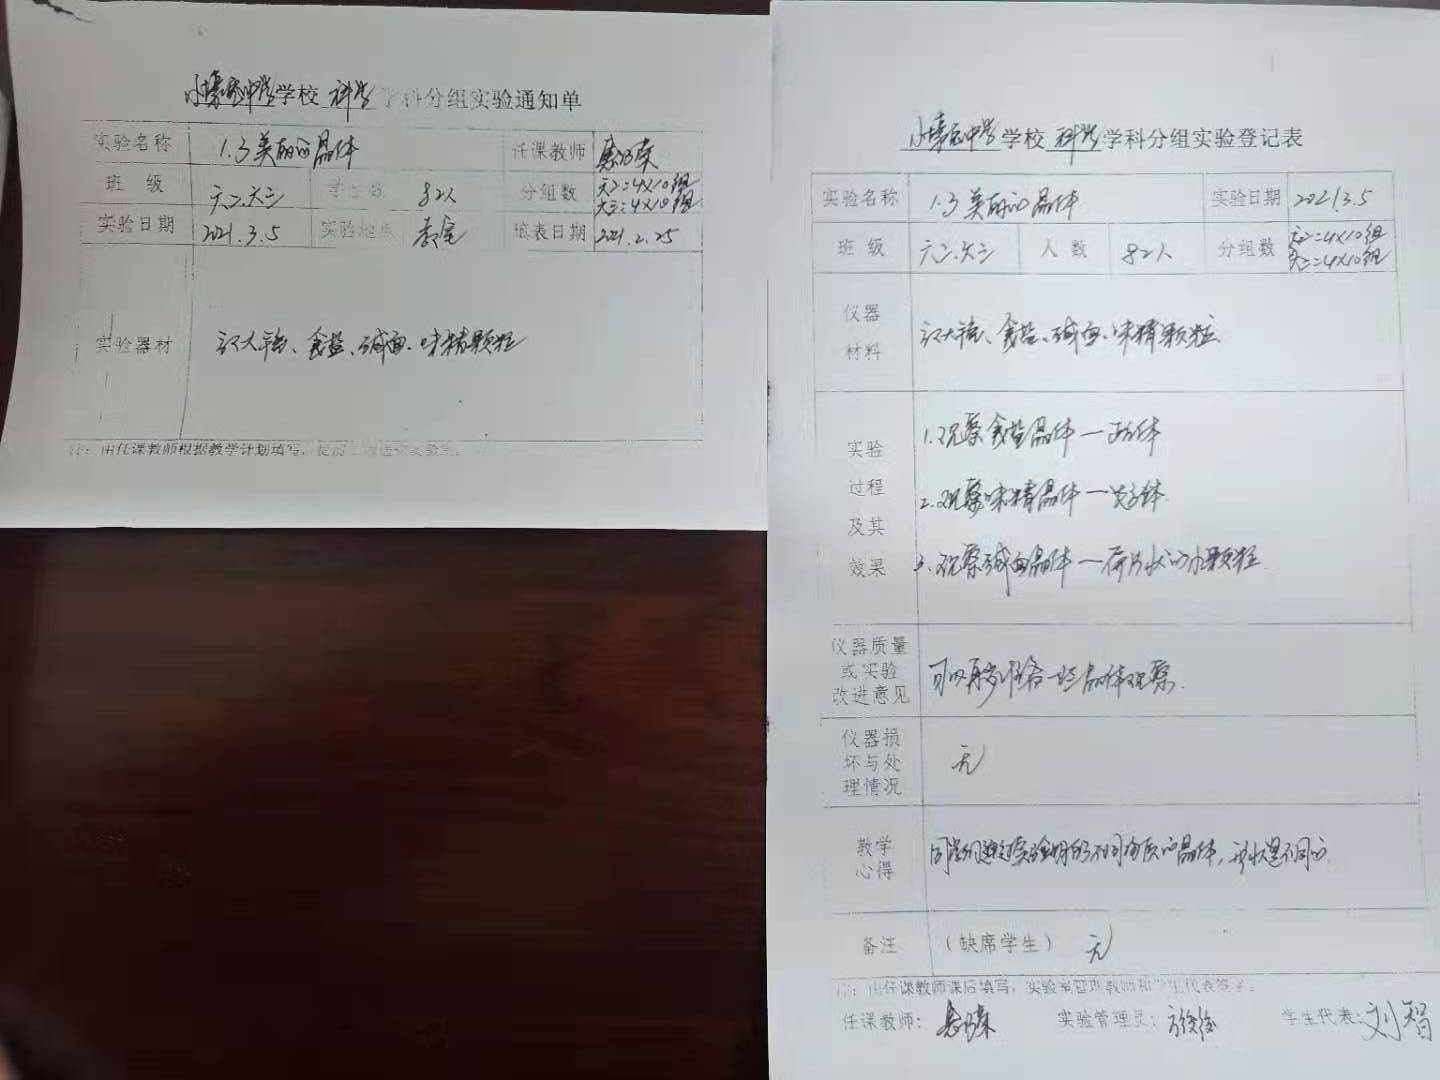 学校 科学 学科分组实验通知单
实验名称 1.3美丽的晶体 任课教师
班 级 六二.六三 学生数 82人 分组数 六二:4×10组
六三:4×10组
实验日期 2021.3.5 实验地点 教室 填表日期 2021.2.25
实验器材 食盐、碱面、味精颗粒
注：由任课教师根据教学计划填写，提前
学校 科学 学科分组实验登记表
实验名称 1.3美丽的晶体 实验日期 2021.3.5
班 级 六二.六三 人 数 82人 分组数 六二:4×10组
六三:4×10组
仪器
材料
食盐、碱面、味精颗粒
实验
过程
及其
效果
1.观察食盐晶体—立方体
2.观察味精晶体—
3.观察碱面晶体—片状的小颗粒
仪器质量
或实验
改进意见
可以再多准备一些晶体观察.
仪器损
坏与处
理情况
无
教学
心得
同学们通过实验明白不同物质的晶体，形状是不同的.
备注 （缺席学生） 无
注：由任课教师课后填写，实验室管理教师和学生代表签字。
任课教师： 实验管理员： 学生代表：刘智